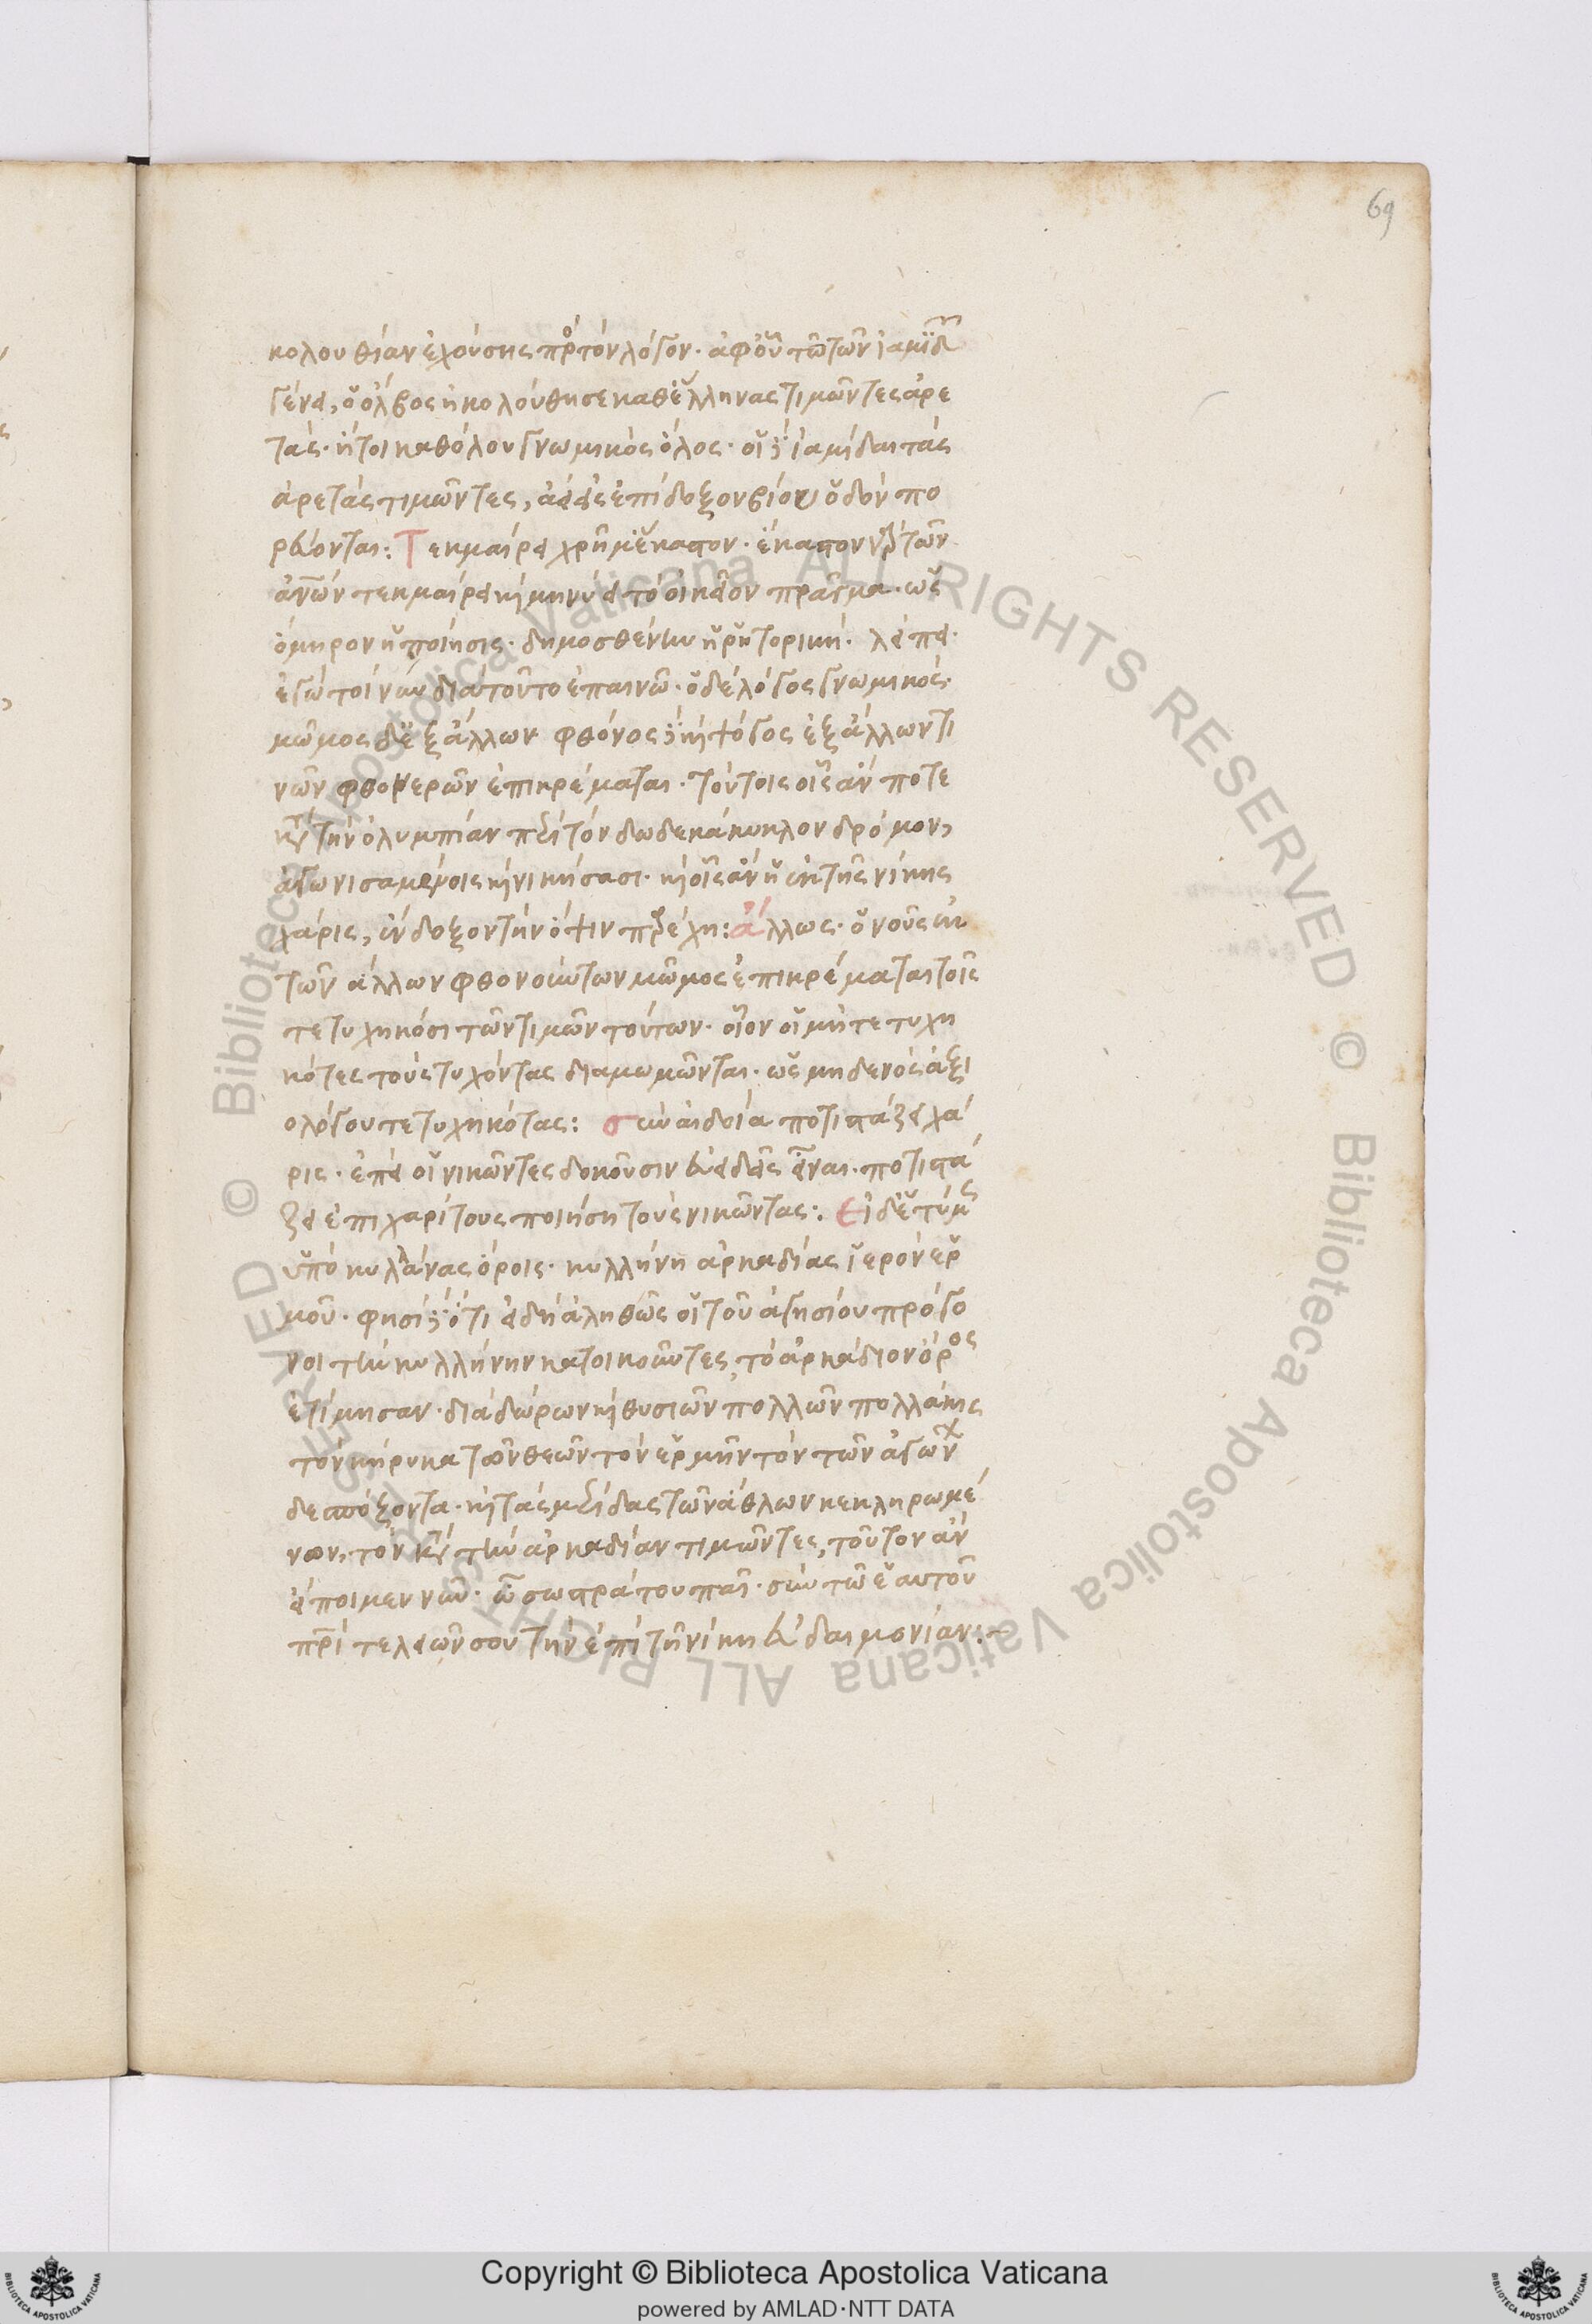 69
κολουθίαν ἐχούσης πρὸς τὸν λόγον· ἀφοὗ τῶ τῶν ἰαμιδῶν
γένει, ὁ ὄλβος ἠκολούθησε καθ' ἕλληνας τιμῶντες ἀρε
τάς· ἤτοι καθόλου γνωμικὸς ὅλος· οἱ δὲ ἰαμίδαι τὰς
ἀρετὰς τιμῶντες, εἰς ἐπίδοξον βίου ὁδὸν πο
ρεύονται: Τεκμαίρει χρῆμ' ἕκαστον· ἕκαστον γὰρ τῶν
ἀνῶν τεκμαίρει καὶ μηνύει τὸ οἰκεῖον πρᾶγμα· ὡς
ὅμηρον ἡ ποίησις· δημοσθένην ἡ ῥητορική· λείπει·
ἐγὼ τοίνυν διὰ τοῦτο ἐπαινῶ· ὁ δὲ λόγος γνωμικός·
μῶμος δ' ἐξ ἄλλων φθόνος δὲ καὶ ψόγος ἐξ ἄλλων τι
νῶν φθονερῶν ἐπικρέμαται· τούτοις οἷς ἄν ποτε
κατὰ τὴν ὀλυμπίαν περὶ τὸν δωδεκάκυκλον δρόμον,
ἀγωνισαμένοις καὶ νικήσασι· καὶ οἷς ἂν ἡ ἐκ τῆς νίκης
χάρις, ἔνδοξον τὴν ὄψιν παρέχη: ἄλλως· ὁ νοῦς ἐκ
τῶν ἄλλων φθονούντων μῶμος ἐπικρέμαται τοῖς
τετυχηκόσι τῶν τιμῶν τούτων· οἷον οἱ μὴ τετυχη
κότες τοὺς τυχόντας διαμωμῶνται· ὡς μηδενὸς ἀξι
ολόγου τετυχηκότας: σὺν αἰδοία ποτιστάζει χά
ρις· ἐπεὶ οἱ νικῶντες δοκοῦσιν εὐειδεῖς εἶναι· ποτιστά
ζει ἐπιχαρίτους ποιήση τοὺς νικῶντας: Εἰ δ' ἐτύμως
ὑπὸ κυλλάνας ὄροις· κυλλήνη ἀρκαδίας ἱερὸν ἑρ
μοῦ· φησὶ δὲ ὅτι εἰ δὴ ἀληθῶς οἱ τοῦ ἀγησίου πρόγο
νοι τὴν κυλλήνην κατοικοῦντες, τὸ ἀρκάδιον ὄρος
ἐτίμησαν· διὰ δώρων καὶ θυσιῶν πολλῶν πολλάκις
τὸν κήρυκα τῶν θεῶν τὸν ἑρμῆν τὸν τῶν ἀγώνων
δεσπόζοντα· καὶ τὰς μερίδας τῶν ἄθλων κεκληρωμέ
νον, τὸν κατὰ τὴν ἀρκαδίαν τιμῶντες, τοῦτον ἂν
εἴποιμεν νῦν· ὦ σωστράτου παῖ· σὺν τῶ ἑαυτοῦ
πρὶ τελειῶν σου τὴν ἐπὶ τῆ νίκη εὐδαιμονίαν:~
Copyright © Biblioteca Apostolica Vaticana
powered by AMLAD·NTT DATA